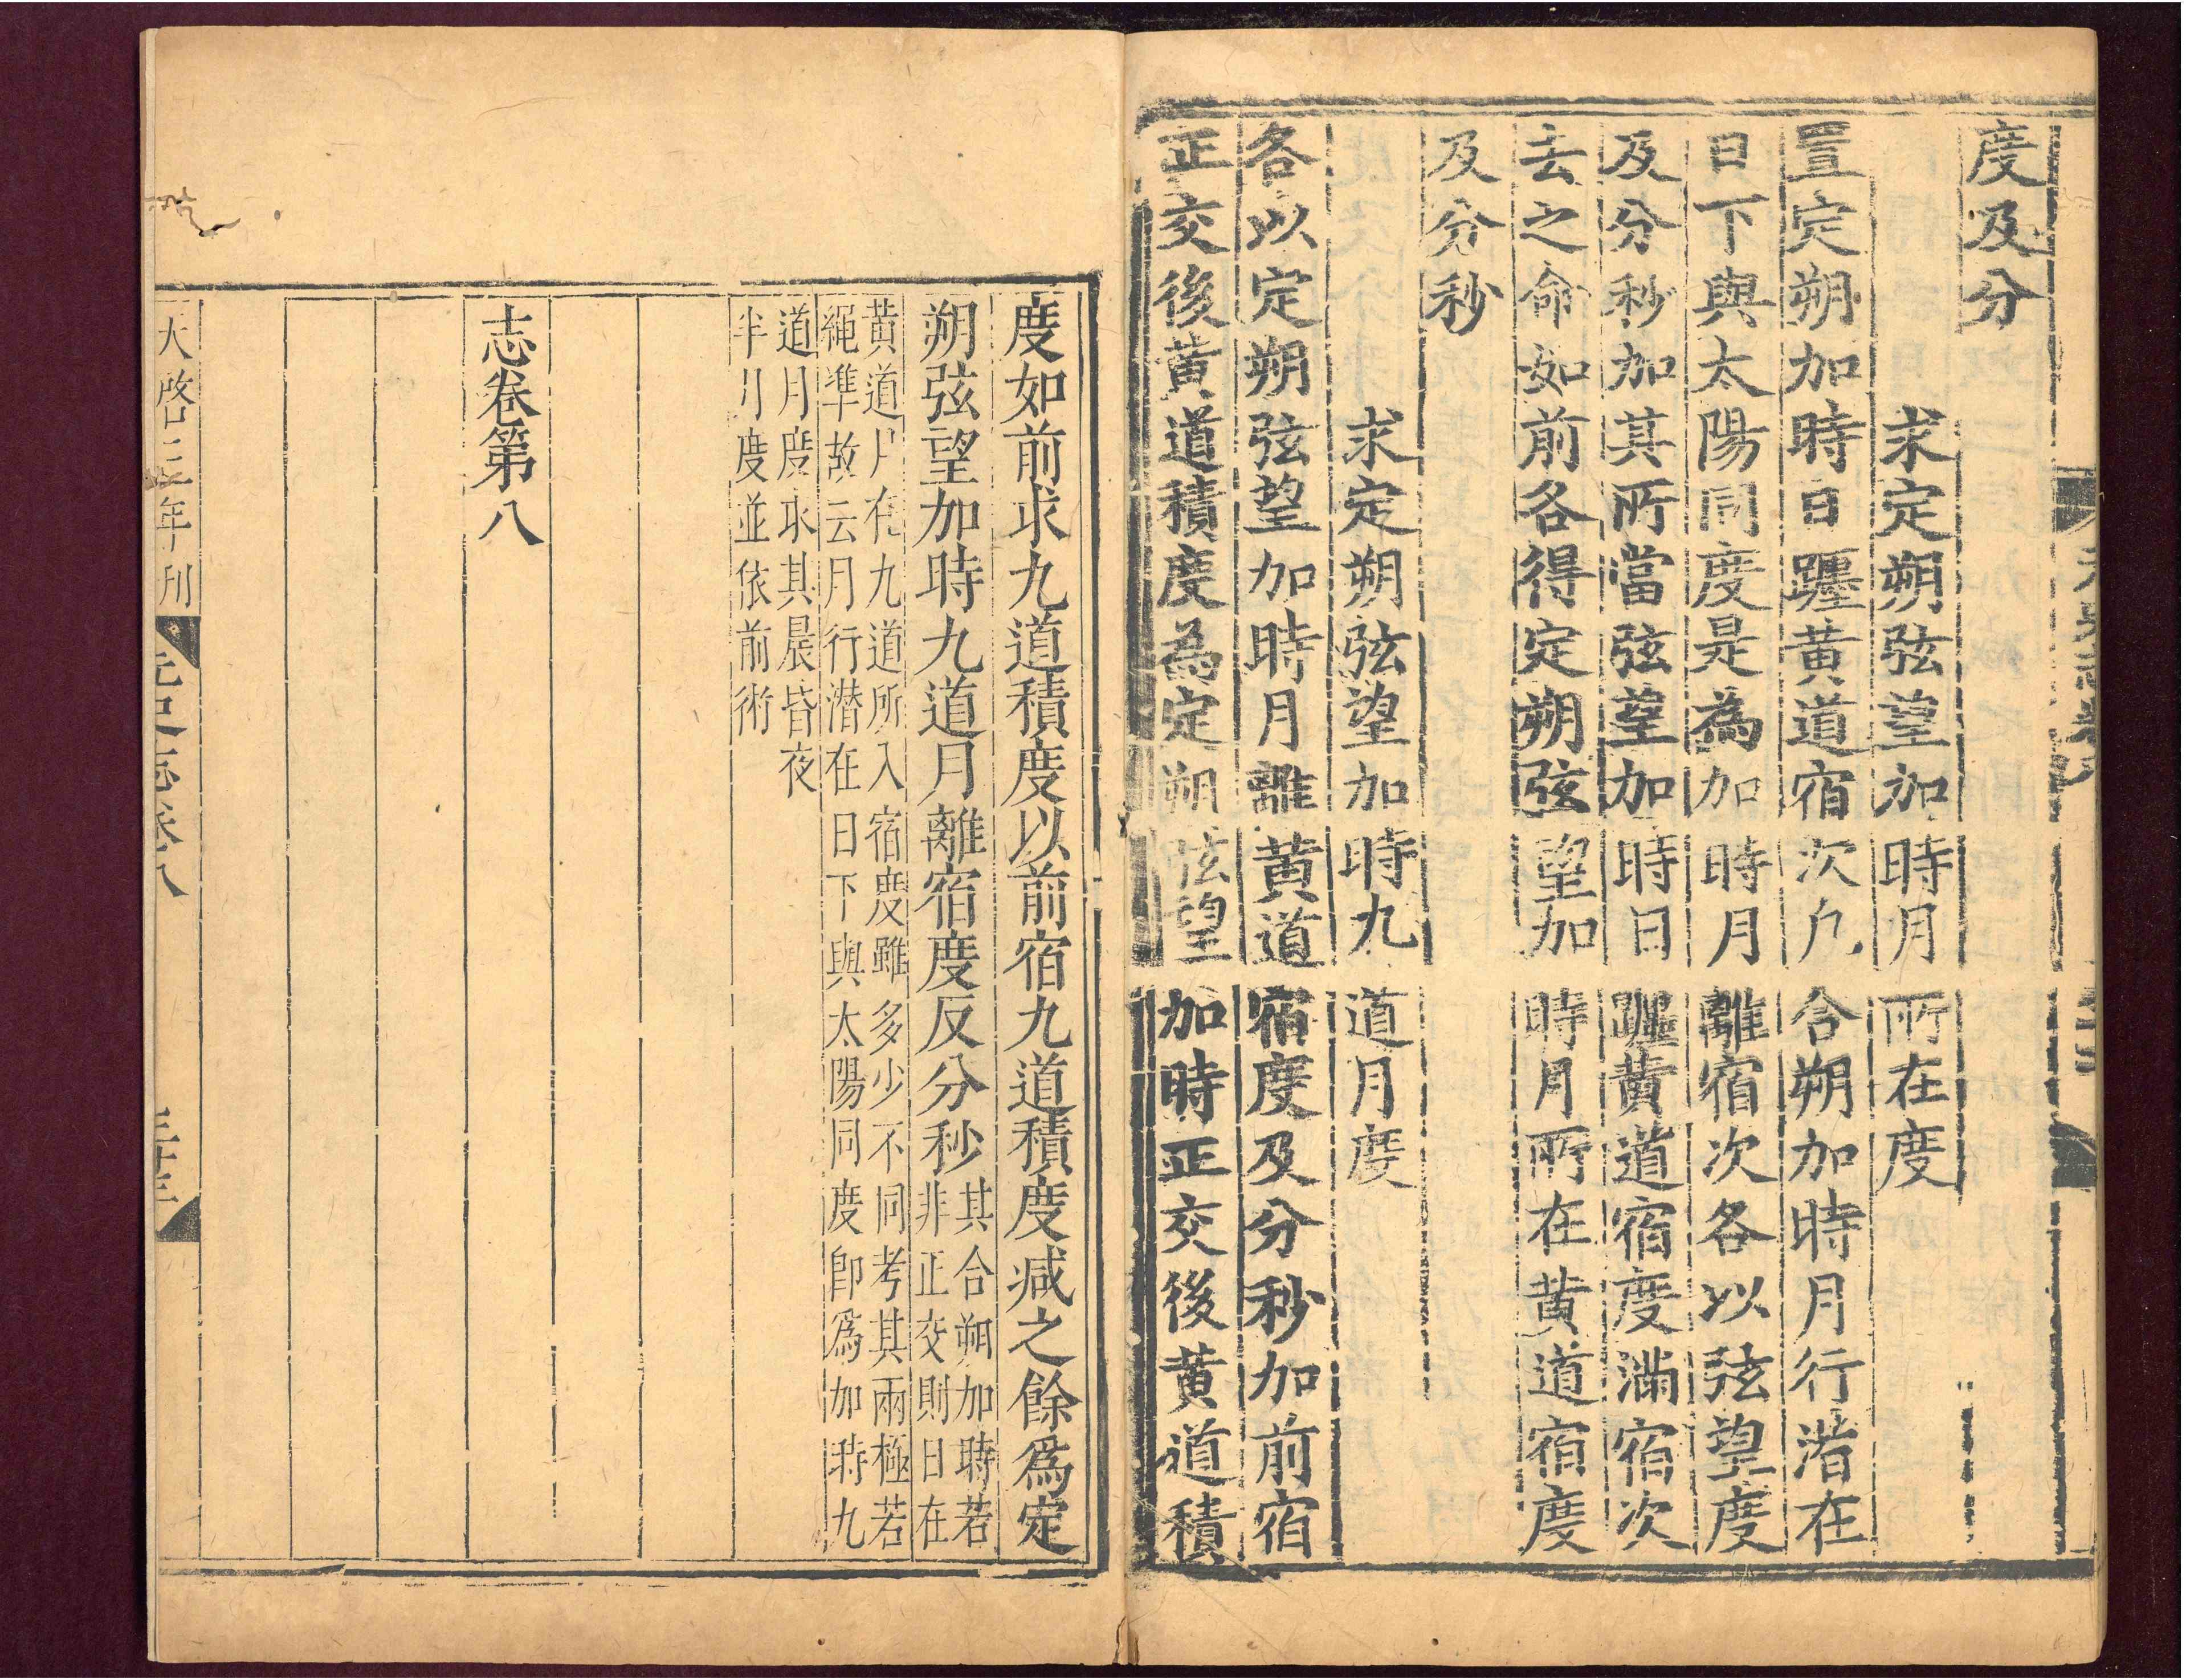 度及分
求定朔弦望加時月所在度
置定朔加時日躔黃道宿次凡合朔加時月行潛在
日下與太陽同度是為加時月離宿次各以弦望度
及分秒加其所當弦望加時日躔黃道宿度滿宿次
去之命如前各得定朔弦望加時月所在黃道宿度
及分秒
求定朔弦望加時九道月度
各以定朔弦望加時月離黃道宿度及分秒加前宿
正交後黃道積度為定朔弦望加時正交後黃道積
度如前求九道積度以前宿九道積度减之餘爲定
朔弦望加時九道月離宿度反分秒
其合朔加時若
非正交則日在
黃道月在九道所入宿度雖多少不同考其兩極若
繩準故云月行潛在日下與太陽同度卽爲加時九
道月度求其晨昏夜
半月度並依前術
志卷第八
天啓三年刊
元史志卷八